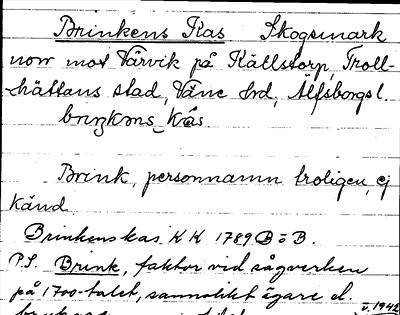 Brinkens Kas Skogsmark
norr mot Vårvik på Källstorp, Troll-
hättans stad, Väne hrd, Älfsborgs l.
briŋkəns kas.
Brink, personnamn troligen, ej
känd.
Brinkens kas KK 1789 B ö B.
P.S. Brink, faktor vid sågverken
på 1700-talet, sannolikt ägare d.
v. 1942